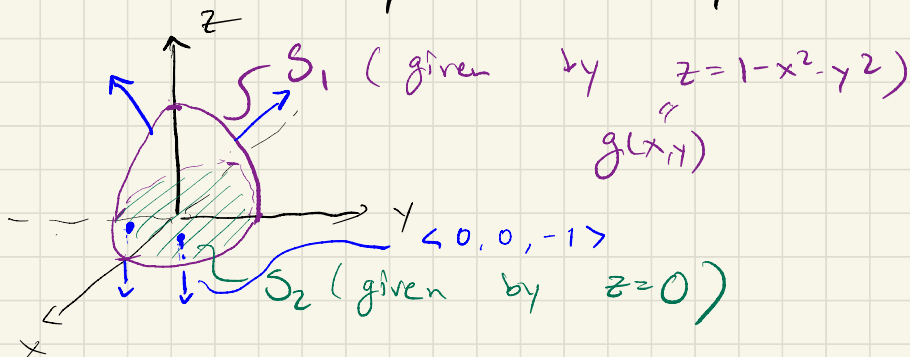 z
S₁ (given by z=1-x²-y²)
"
g(x,y)
y
<0,0,-1>
S₂ (given by z=0)
x